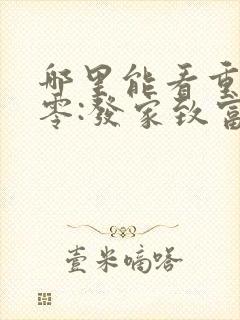 哪里能看重
零:發家致富
壹米嘀嗒